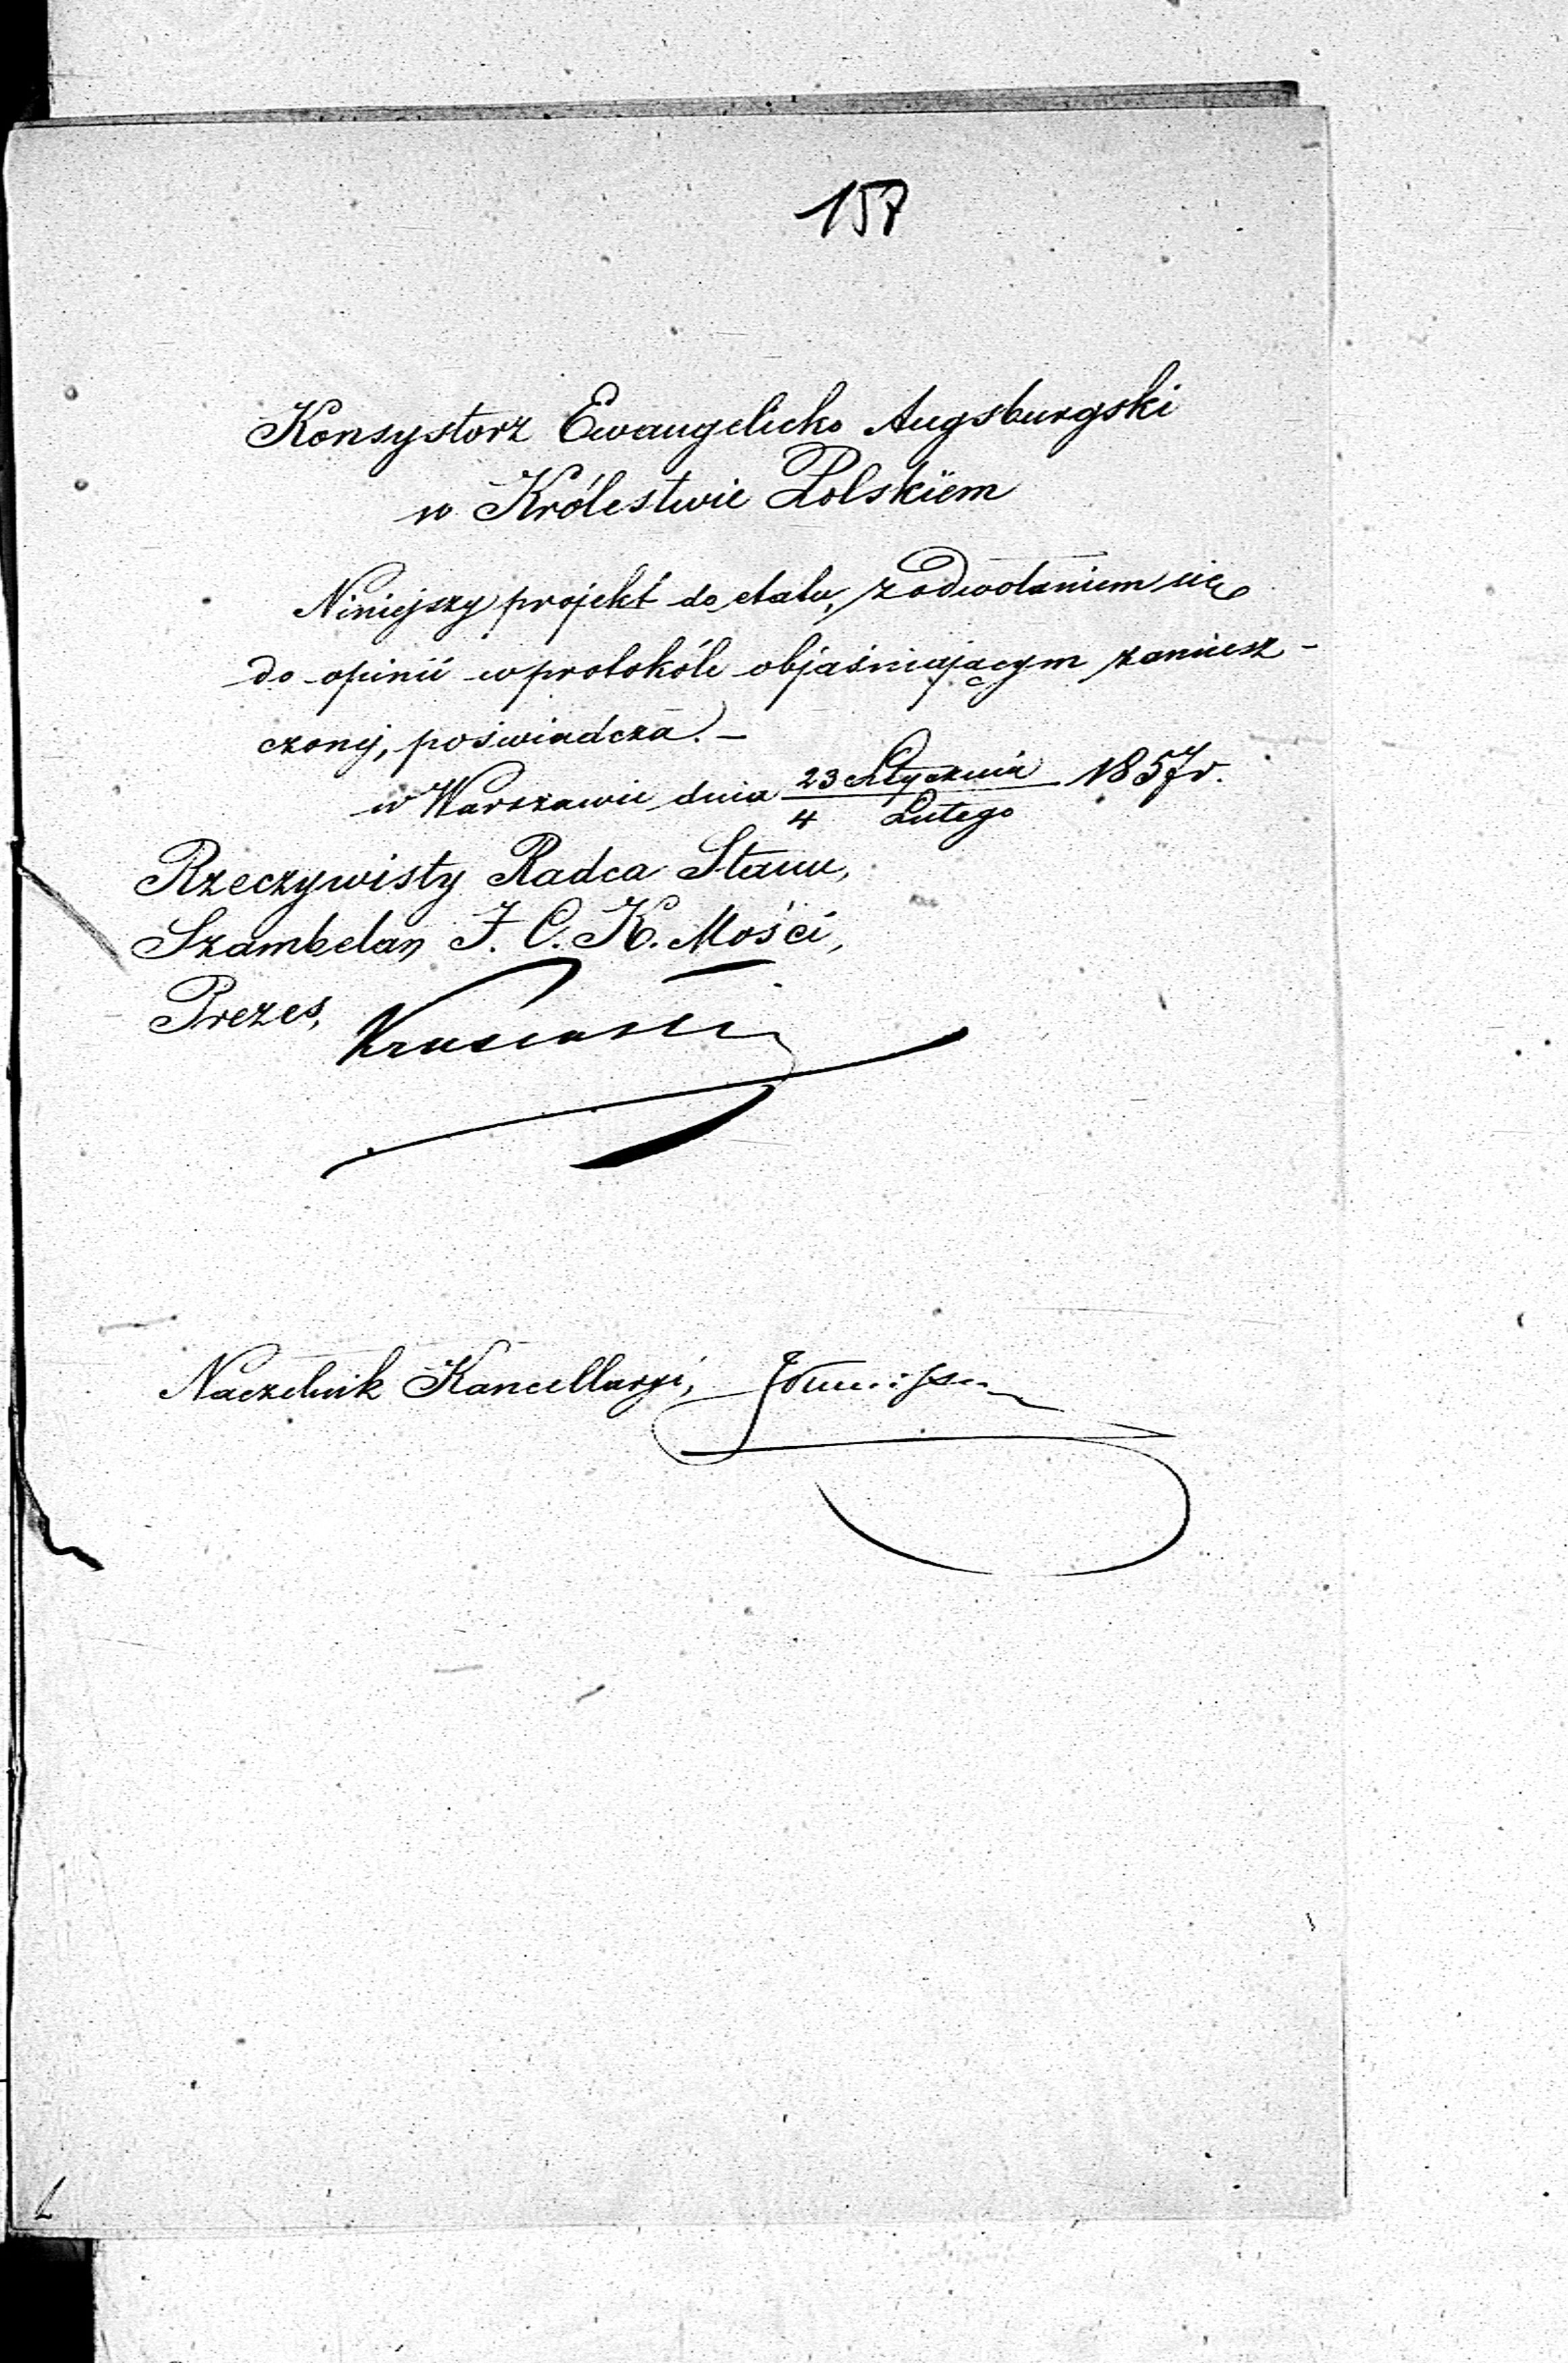 157
Konsystorz Ewangelicko Augsburgski
w Królestwie Polskiem
Niniejszy projekt do etatu, z odwołaniem się
do opinii w protokóle objaśniającym zamiesz-
czonej, poświadcza. –
w Warszawie dnia 23 Stycznia / 4 Lutego 1857 r.
Rzeczywisty Radca Stanu,
Szambelan J. C. K. Mości,
Prezes,
Naczelnik Kancellaryi,